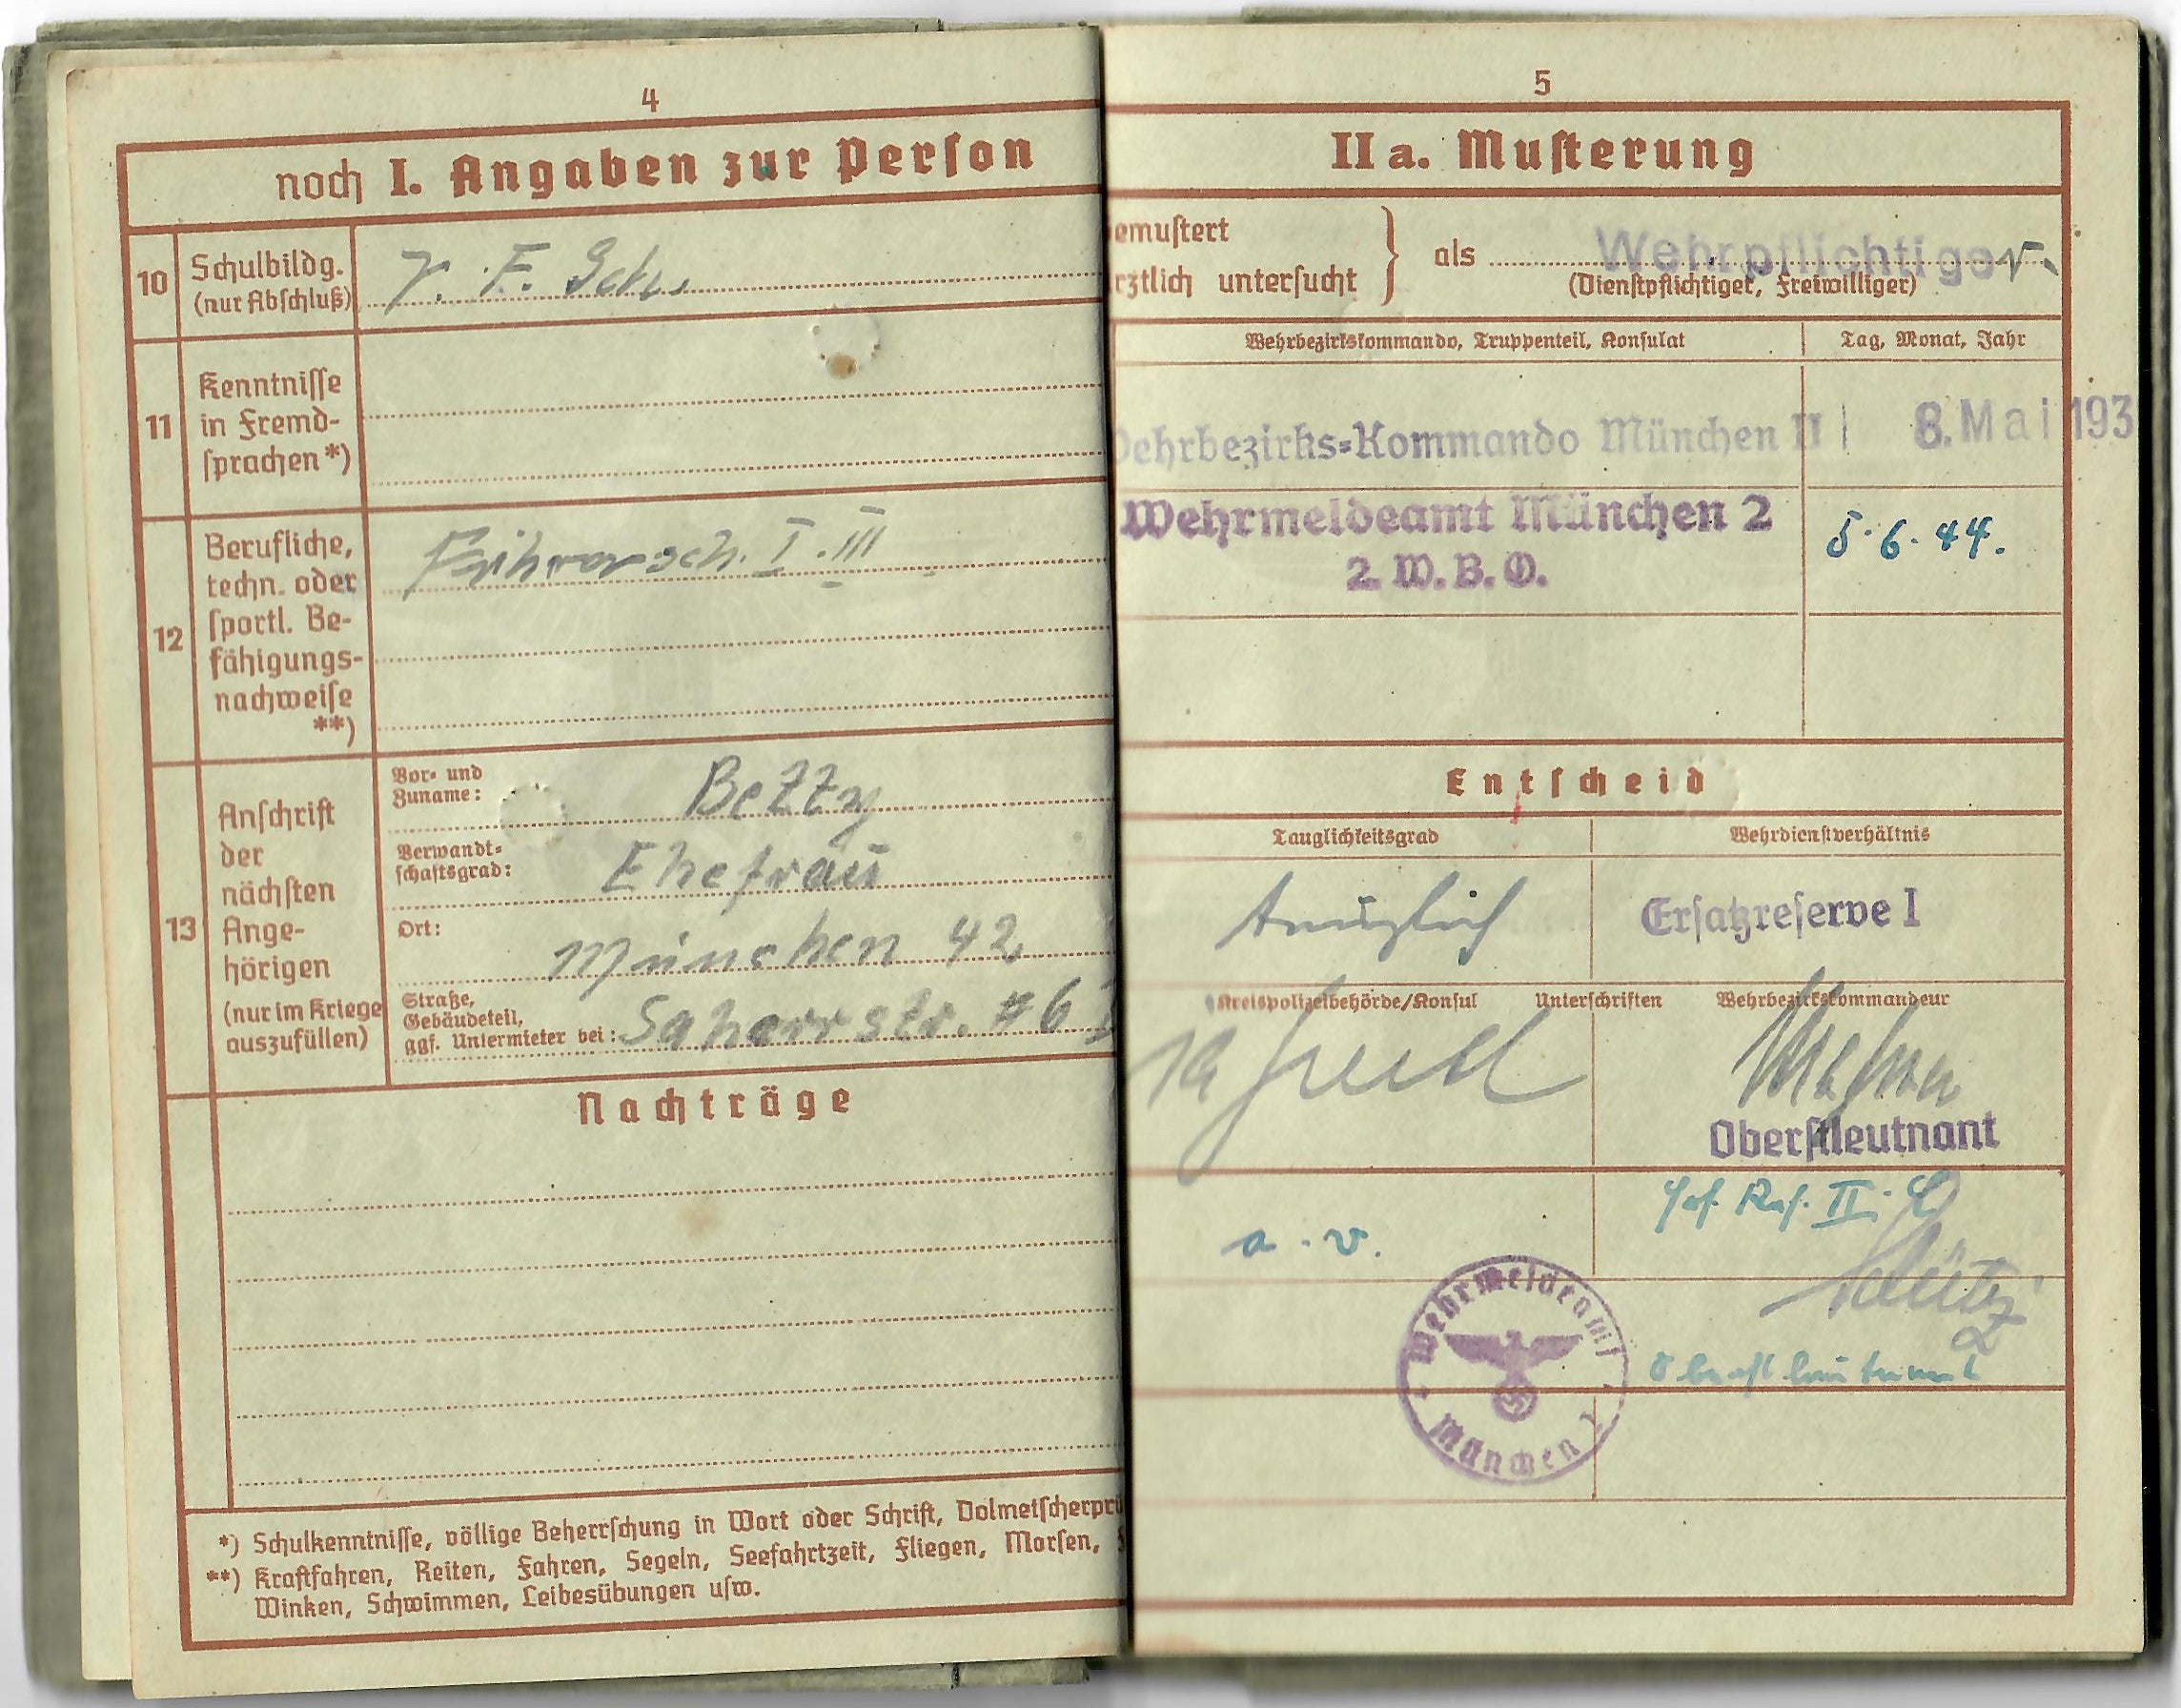 4
noch I. Angaben zur Person
10 Schulbildg.
(nur Abschluß)
11 Kenntnisse
in Fremd-
sprachen *)
12 Berufliche,
techn. oder
sportl. Be-
fähigungs-
nachweise
**)
Führersch. I. III
13 Anschrift
der
nächsten
Ange-
hörigen
(nur im Kriege
auszufüllen)
Vor- und
Zuname: Betty
Verwandt-
schaftsgrad: Ehefrau
Ort: München 42
Straße,
Gebäudeteil,
ggf. Untermieter bei:
Nachträge
*) Schulkenntnisse, völlige Beherrschung in Wort oder Schrift, Dolmetscherprü
**) Kraftfahren, Reiten, Fahren, Segeln, Seefahrtzeit, Fliegen, Morsen,
Winken, Schwimmen, Leibesübungen usw.
5
II a. Musterung
emustert
rztlich untersucht
als Wehrpflichtiger
(Dienstpflichtiger, Freiwilliger)
Wehrbezirkskommando, Truppenteil, Konsulat Tag, Monat, Jahr
Wehrbezirks=Kommando München II 8. Mai 193
Wehrmeldeamt München 2 5.6.44.
2. W. B. O.
Entscheid
Tauglichkeitsgrad Wehrdienstverhältnis
tauglich Ersatzreserve I
Kreispolizeibehörde/Konsul Unterschriften Wehrbezirkskommandeur
Oberstleutnant
a.v. Rs. II
Oberstleutnant
Wehrmeldeamt
München